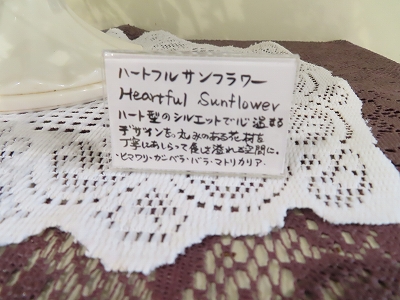 ハートフルサンフラワー
Heartful Sunflower
ハート型のシルエットで心温まる
デザインを。丸みのある花材を
丁寧にあしらって優しさ溢れる空間に。
・ヒマワリ・ガーベラ・バラ・マトリカリア